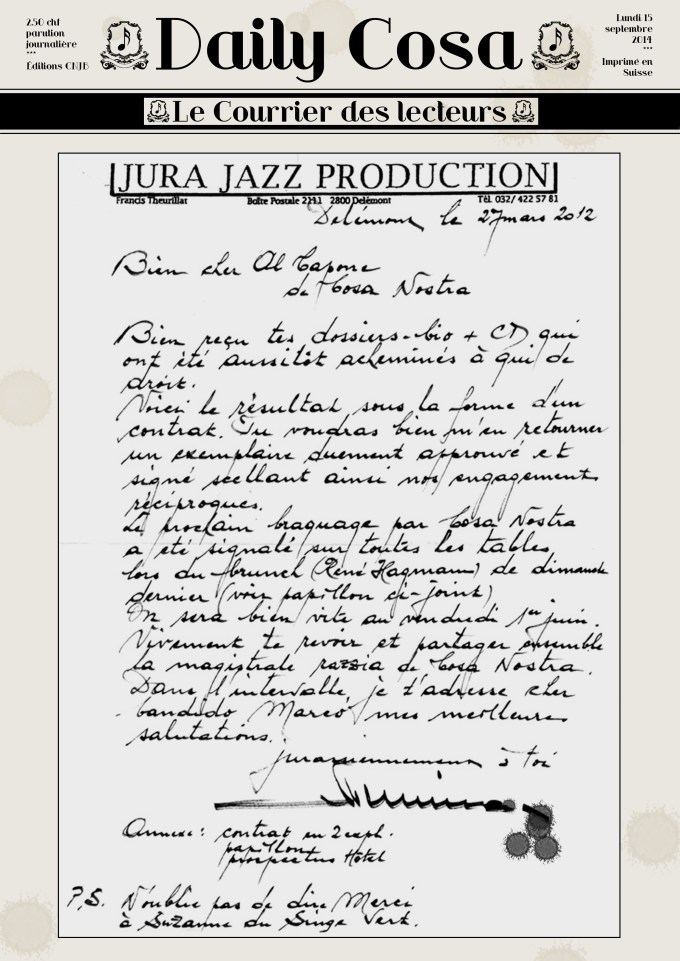 2.50 chf
parution
journalière
***
Éditions CNJB
Daily Cosa
Lundi 15
septembre
2014
***
Imprimé en
Suisse
Le Courrier des lecteurs
JURA JAZZ PRODUCTION
Francis Theurillat Boîte Postale 2211 2800 Delémont Tél. 032/ 422 57 81
Delémont, le 27 mars 2012
Bien cher Al Capone
de Cosa Nostra
Bien reçu tes dossiers-bio + CD qui
ont été aussitôt acheminés à qui de
droit.
Voici le résultat sous la forme d'un
contrat. Tu voudras bien m'en retourner
un exemplaire duement approuvé et
signé scellant ainsi nos engagements
réciproques.
Le prochain braquage par Cosa Nostra
a été signalé sur toutes les tables
lors du brunch (René Hagmann) de dimanche
dernier (voir papillon ci-joint)
On sera bien vite au vendredi 1er juin.
Vivement te revoir et partager ensemble
la magistrale razzia de Cosa Nostra.
Dans l'intervalle, je t'adresse cher
bandido Marco mes meilleures
salutations.
jurassiennement à toi
Annexe : contrat en 2 expl.
papillon
prospectus Hôtel
P.S. N'oublie pas de dire Merci
à Suzanne du Singe Vert.